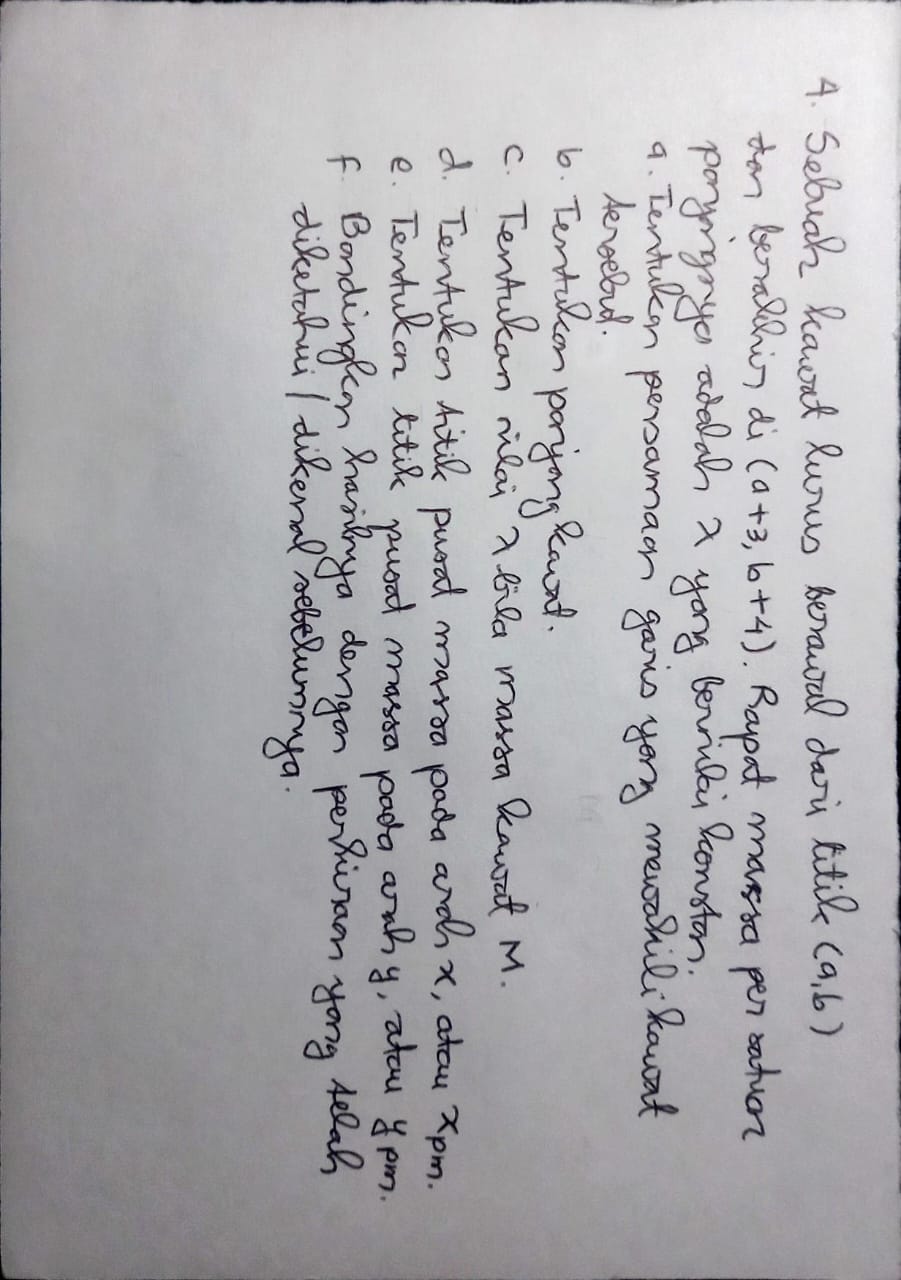 4. Sebuah kawat lurus berawal dari titik (a,b)
dan berakhir di (a+3, b+4). Rapat massa per satuan
panjangnya adalah λ yang bernilai konstan.
a. Tentukan persamaan garis yang mewakili kawat
tersebut.
b. Tentukan panjang kawat.
c. Tentukan nilai λ bila massa kawat M.
d. Tentukan titik pusat massa pada arah x, atau xpm.
e. Tentukan titik pusat massa pada arah y, atau ypm.
f. Bandingkan hasilnya dengan perkiraan yang telah
diketahui / dikenal sebelumnya.